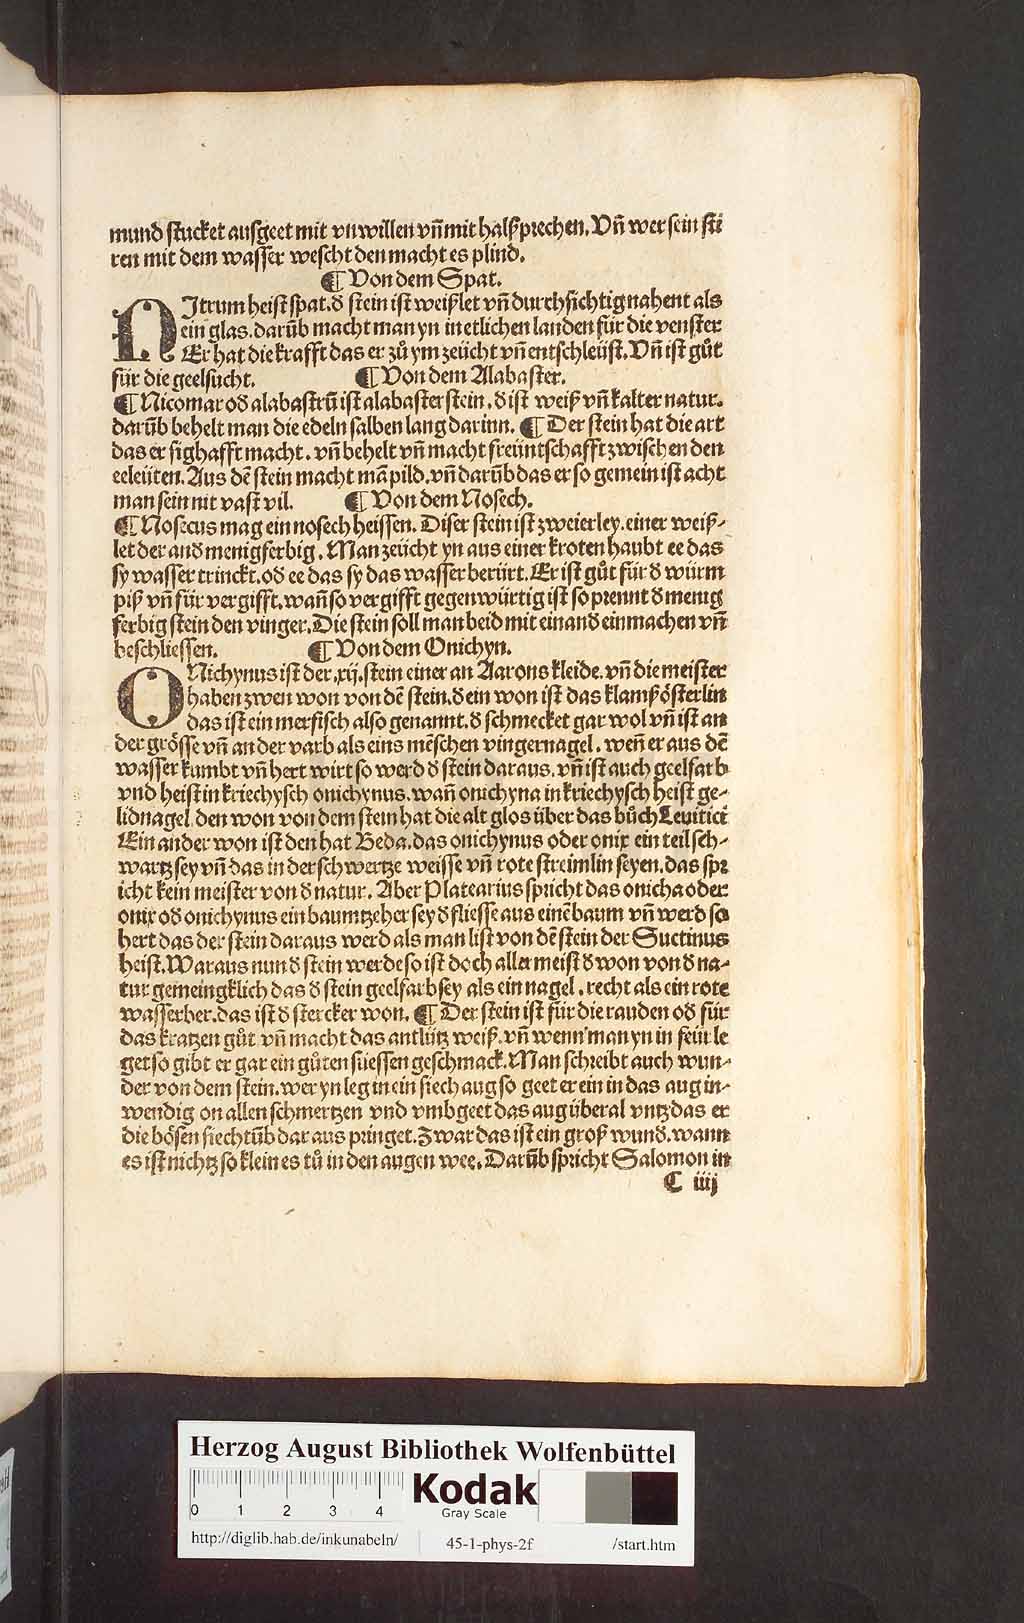 mund stucket ausgeet mit vnwillen vñ mit halßprechen. Vñ wer sein sti
ren mit dem wasser wescht den macht es plind.
¶ Von dem Spat.
NItrum heist spat. d̕ stein ist weißlet vñ durchsichtig nahent als
ein glas. darūb macht man yn in etlichen landen für die venster
Er hat die krafft das er zů ym zeücht vñ entschleüst. Vñ ist gůt
für die geelsucht. ¶ Von dem Alabaster.
¶ Nicomar od̕ alabastrū ist alabaster stein. d̕ ist weiß vñ kalter natur.
darūb behelt man die edeln salben lang darinn. ¶ Der stein hat die art
das er sighafft macht. vñ behelt vñ macht freüntschafft zwischen den
eeleüten. Aus dē stein macht mā pild. vñ darūb das er so gemein ist acht
man sein nit vast vil. ¶ Von dem Nosech.
¶ Nosecus mag ein nosech heissen. Diser stein ist zweierley. einer weiß-
let der and̕ menigferbig. Man zeücht yn aus einer kroten haubt ee das
sy wasser trinckt. od̕ ee das sy das wasser berürt. Er ist gůt für d̕ würm
piß vñ für vergifft. wañ so vergifft gegenwürtig ist so prennt d̕ menig
ferbig stein den vinger. Die stein soll man beid mit einand̕ einmachen vñ
beschliessen. ¶ Von dem Onichyn.
ONichynus ist der .xij. stein einer an Aarons kleide. vñ die meister
haben zwen won von dē stein. d̕ ein won ist das klamßösterlin
das ist ein merfisch also genannt. d̕ schmecket gar wol vñ ist an
der grösse vñ an der varb als eins mēschen vingernagel. weñ er aus dē
wasser kumbt vñ hert wirt so werd d̕ stein daraus. vñ ist auch geelfarb
vnd heist in kriechysch onichynus. wañ onichyna in kriechysch heist ge-
lidnagel. den won von dem stein hat die alt glos über das bůch Leuitici
Ein ander won ist den hat Beda. das onichynus oder onix ein teil sch-
wartz sey vñ das in der schwertze weisse vñ rote streimlin seyen. das spr
icht kein meister von d̕ natur. Aber Platearius spricht das onicha oder
onix od̕ onichynus ein baumtzeher sey d̕ fliesse aus einē baum vñ werd so
hert das der stein daraus werd als man list von dē stein der Suctinus
heist. Waraus nun d̕ stein werde so ist doch aller meist d̕ won von d̕ na-
tur gemeingklich das d̕ stein geelfarb sey als ein nagel. recht als ein rote
wasserber. das ist d̕ stercker won. ¶ Der stein ist für die rauden od̕ für
das kratzen gůt vñ macht das antlütz weiß. vñ wenn man yn in feür le
get so gibt er gar ein gůten süessen geschmack. Man schreibt auch wun-
der von dem stein. wer yn leg in ein siech aug so geet er ein in das aug in-
wendig on allen schmertzen vnd vmbgeet das aug überal vntz das er
die bösen siechtūb dar aus pringet. Zwar das ist ein groß wund̕. wann
es ist nichtz so klein es tů in den augen wee. Darūb spricht Salomon in
C iiij
Herzog August Bibliothek Wolfenbüttel
0 1 2 3 4
Kodak
Gray Scale
http://diglib.hab.de/inkunabeln/ 45-1-phys-2f /start.htm